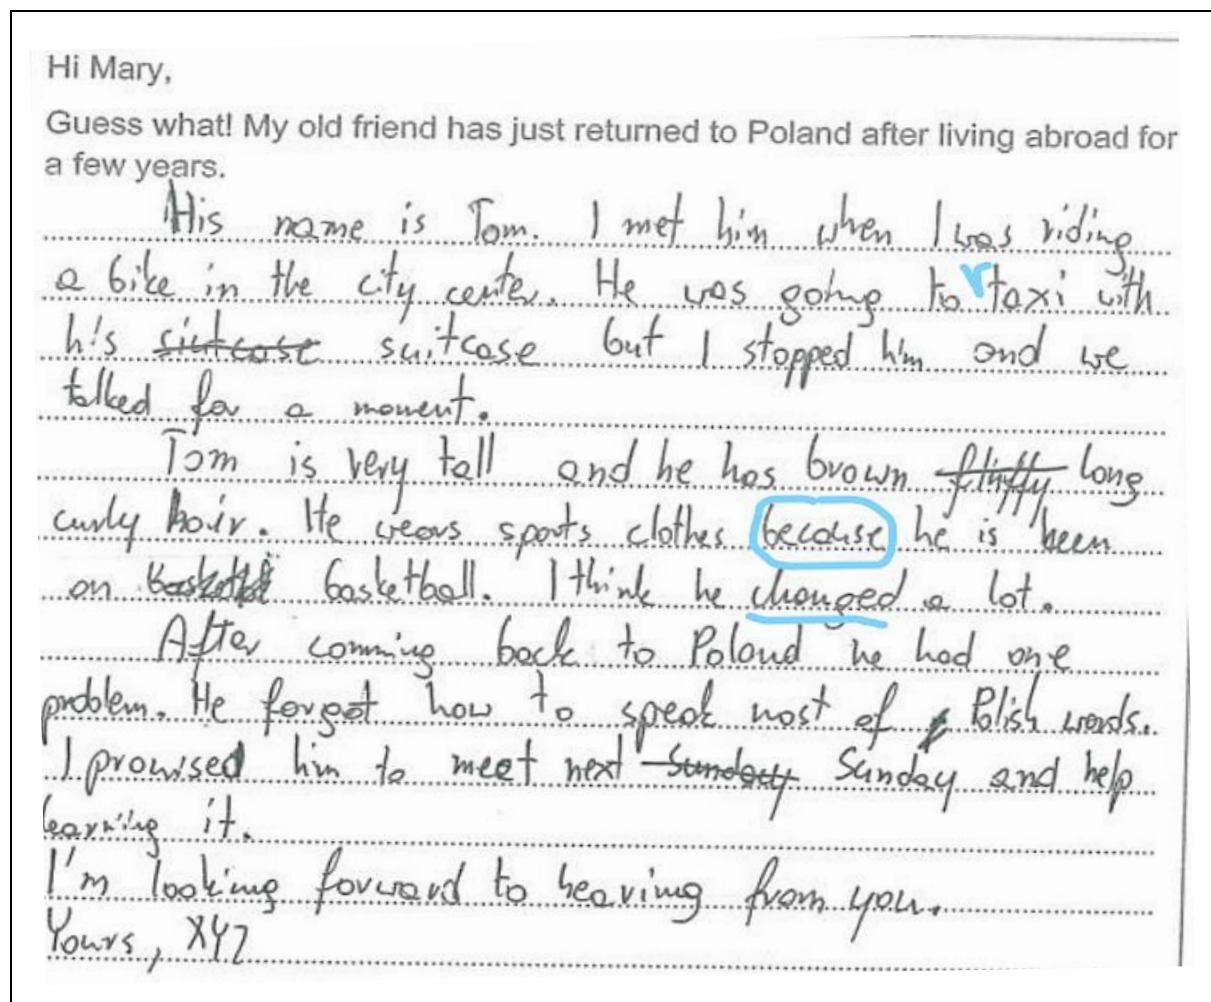 Hi Mary,
Guess what! My old friend has just returned to Poland after living abroad for
a few years.
His name is Tom. I met him when I was riding
a bike in the city center. He was going to taxi with
his suitcase but I stopped him and we
talked for a moment.
Tom is very tall and he has brown long
curly hair. He wears sports clothes because he is keen
on basketball. I think he changed a lot.
After comming back to Poland he had one
problem. He forgot how to speak most of Polish words.
I promised him to meet next Sunday Sunday and help
learning it.
I'm looking forward to hearing from you.
Yours, XYZ